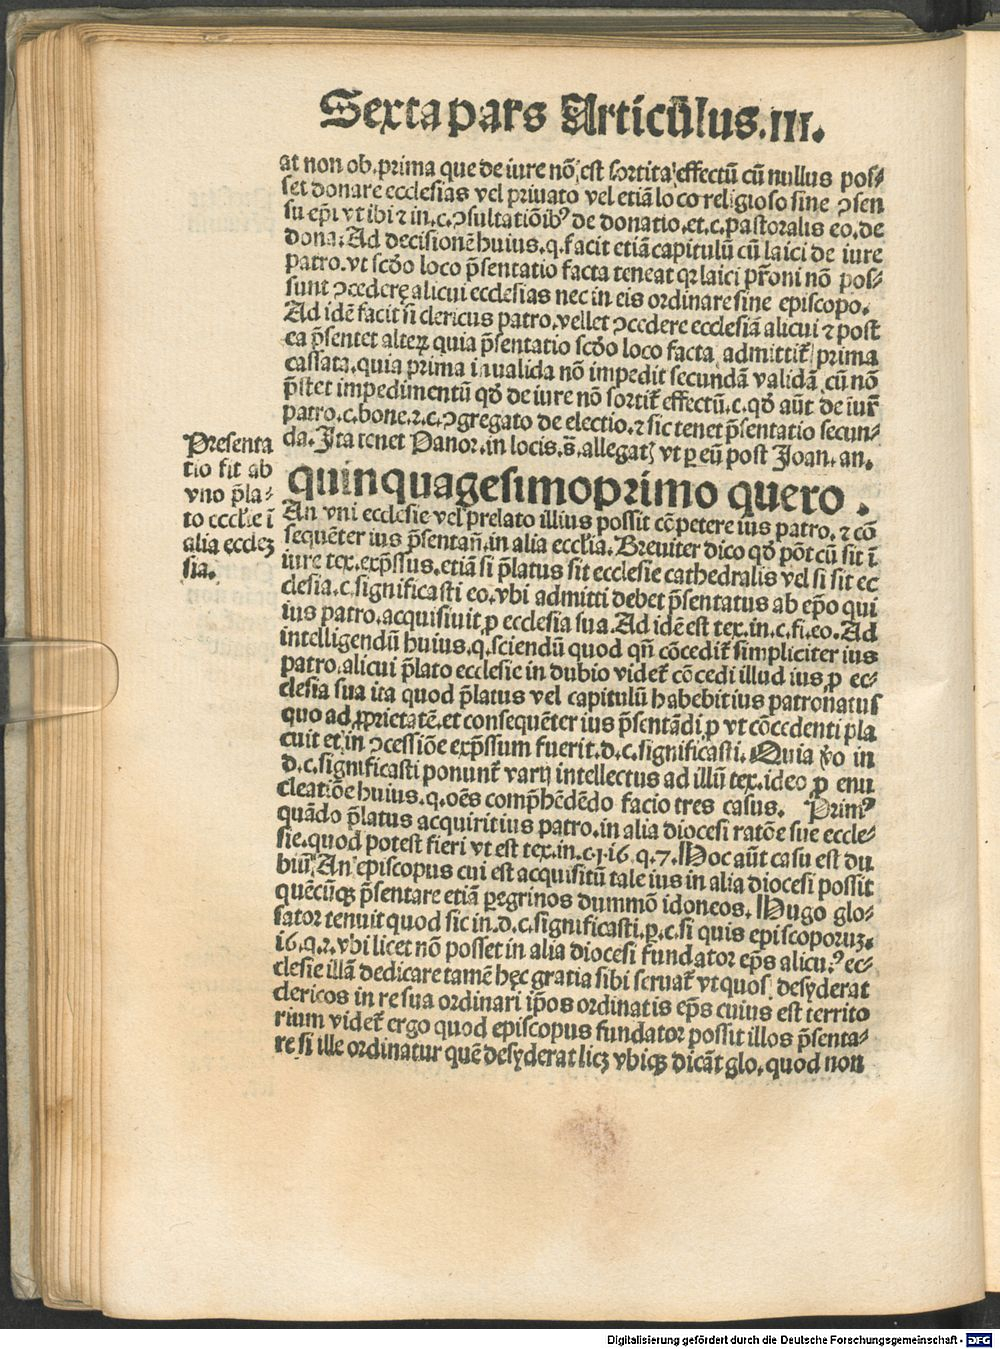 Sexta pars Articūlus.III.
at non ob.prima que de iure nō est sortita effectū cū nullus pos⸗
set donare ecclesias vel priuato vel etiā loco religioso sine ↄsen
su ep̄i vt ibi ⁊ in.c.ↄsultatiōibꝰ de donatio.et.c.pastoralis eo.de
dona.Ad decisionē huius.q.facit etiā capitulū cū laici de iure
patro.vt scḋo loco p̄sentatio facta teneat qꝛ laici pr̄oni nō pos⸗
sunt ↄcedere alicui ecclesias nec in eis ordinare sine episcopo.
Ad idē facit si clericus patro.vellet ↄcedere ecclesiā alicui ⁊ post
ea p̄sentet alteꝝ quia p̄sentatio scḋo loco facta admittit᷑ prima
cassata.quia prima inualida nō impedit secundā validā cū nō
p̄stet impedimentū qḋ de iure nō sortit᷑ effectū.c.qḋ aūt de iur᷑
patro.c.bone.⁊.c.ↄgregato de electio.⁊ sic tenet p̄sentatio secun⸗
da.Ita tenet Panor.in locis.s̄.allegatꝭ vt ꝑ eū post Joan.an.
Presenta
tio fit ab
vno p̄la⸗
to eccl̄ie ī
alia eccleꝫ
sia.
quinquagesimoprimo quero.
An vni ecclesie vel prelato illius possit cōpetere ius patro.⁊ cō
sequēter ius p̄sentan̄.in alia eccl̄ia.Breuiter dico qḋ pōt cū sit ī
iure tex.exp̄ssus.etiā si p̄latus sit ecclesie cathedralis vel si sit ec
clesia.c.significasti eo.vbi admitti debet p̄sentatus ab ep̄o qui
ius patro.acquisiuit ꝓ ecclesia sua.Ad idē est tex.in.c.fi.eo.Ad
intelligendū huius.q.sciendū quod qn̄ cōcedit᷑ simpliciter ius
patro.alicui p̄lato ecclesie in dubio videt᷑ cōcedi illud ius ꝓ ec⸗
clesia sua ita quod p̄latus vel capitulū habebit ius patronatus
quo ad ꝓprietatē.et consequēter ius p̄sentādi ꝓ vt cōcedenti pla
cuit et in ↄcessiōe exp̄ssum fuerit.d.c.significasti.Quia v̊o in
d.c.significasti ponunt᷑ varij intellectus ad illū tex.ideo ꝓ enu
cleatiōe huius.q.oēs comp̄hēdēdo facio tres casus. Primꝰ
quādo p̄latus acquirit ius patro.in alia diocesi ratōe sue eccle⸗
sie.quod potest fieri vt est tex.in.c.j.16.q.7.Hoc aūt casu est du
biū.An episcopus cui est acquisitū tale ius in alia diocesi possit
quēcūqꝫ p̄sentare etiā ꝑegrinos dummō idoneos.Hugo glo⸗
sator tenuit quod sic in.d.c.significasti.ꝑ.c.si quis episcoporuꝫ.
16.q.2.vbi licet nō posset in alia diocesi fundator ep̄s alicuiꝰ ec⸗
clesie illā dedicare tamē hęc gratia sibi seruat᷑ vt quos desyderat
clericos in re sua ordinari ip̄os ordinat is ep̄s cuius est territo
rium videt᷑ ergo quod episcopus fundator possit illos p̄senta⸗
re si ille ordinatur quē desyderat licꝫ vbiqꝫ dicāt glo.quod non
Digitalisierung gefördert durch die Deutsche Forschungsgemeinschaft - DFG